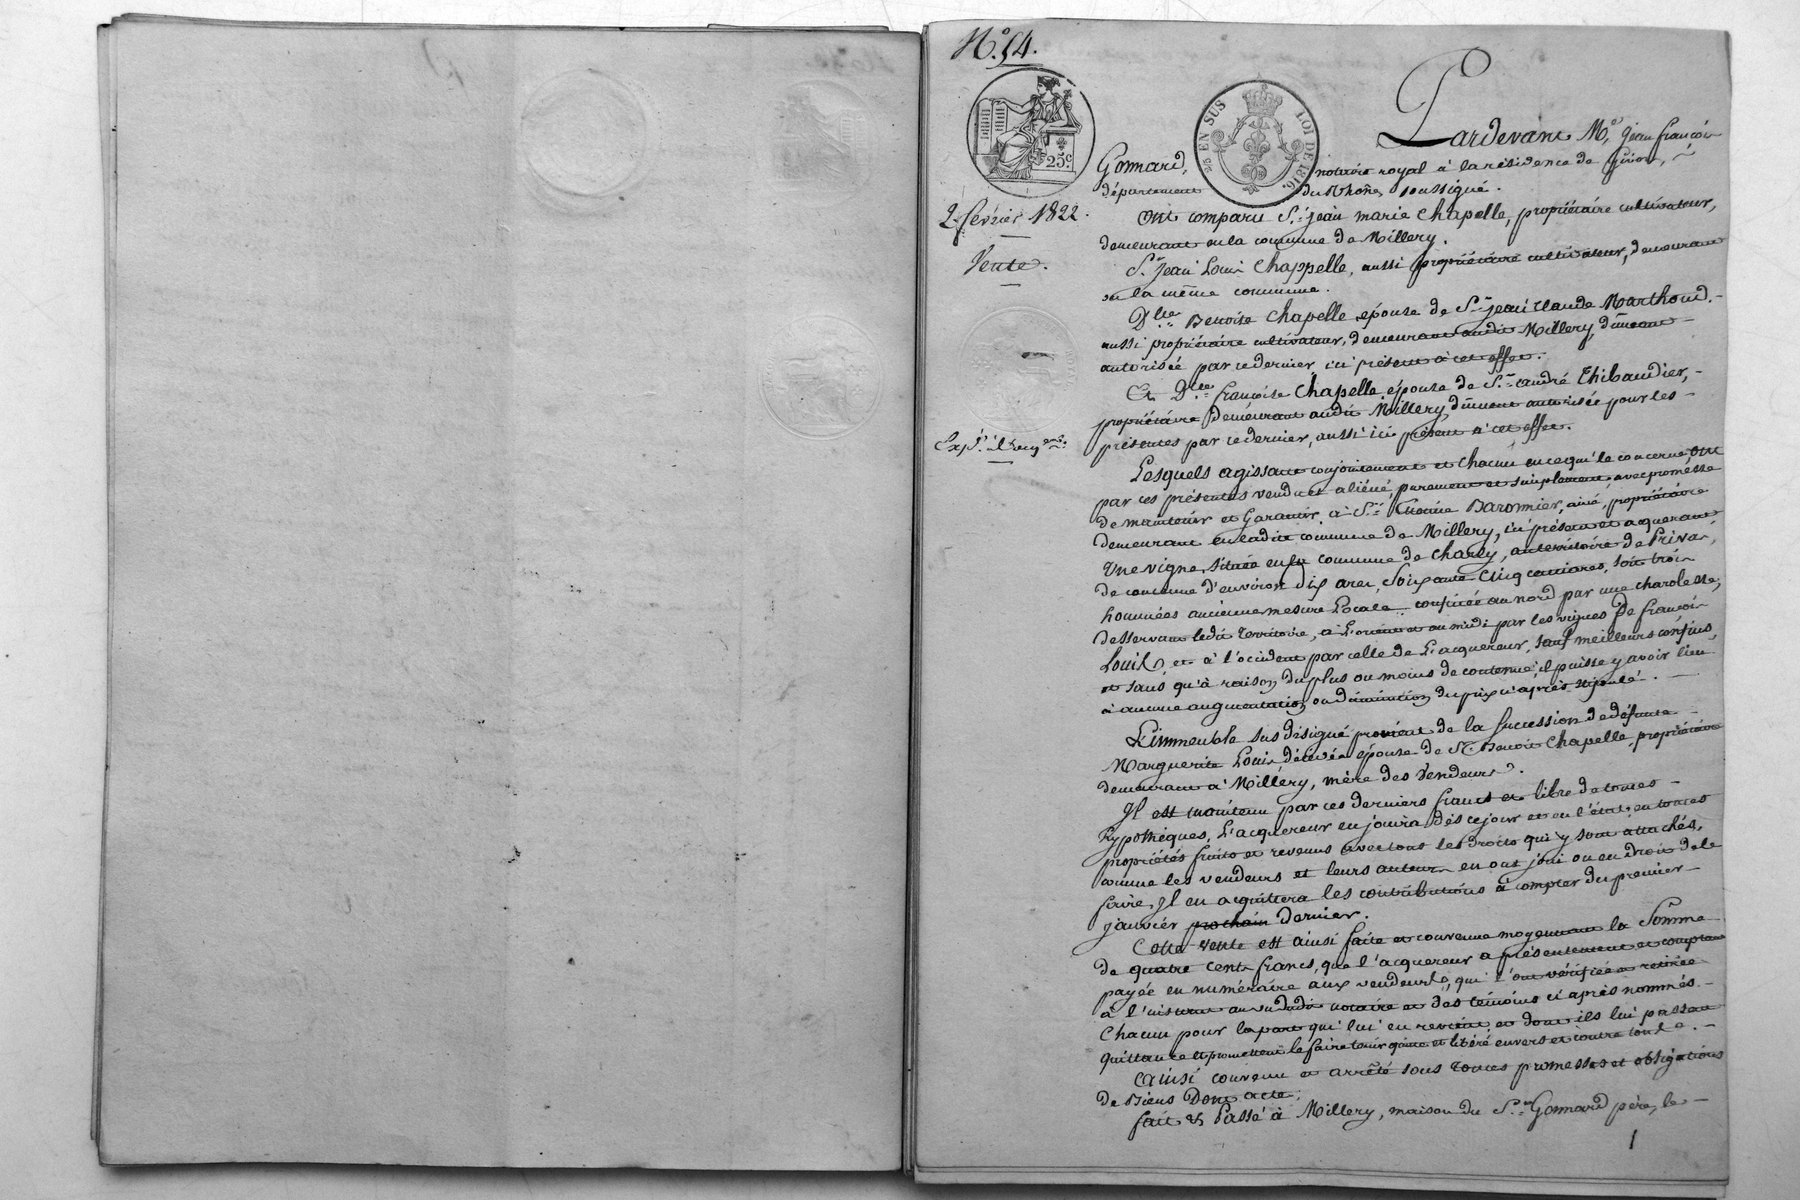 N.° 54.
25.c
2/10 EN SUS LOI DE 1816.
2. février 1822.
Vente.
Exp.
Pardevant M.e Jean françois
Gonnard, notaire royal à la résidence de Givors,
département du Rhône, soussigné.
Ont comparu S.r jean marie Chapelle, propriétaire cultivateur,
demeurant en la commune de Millery.
S.r Jean Louis Chappelle, aussi propriétaire cultivateur, demeurant
en la même commune.
D.lle Benoite Chapelle, épouse de S.r jean Claude Marthoud,
aussi propriétaire cultivateur, demeurant audit Millery, dûment
autorisée par ce dernier, ici présent à cet effet.
Et D.lle françoise Chapelle, épouse de S.r andré Thibaudier,
propriétaire demeurant audit Millery, dûment autorisée pour les
présentes par ce dernier, aussi ici présent à cet effet.
Lesquels agissant conjointement et chacun en ce qu'il le concerne ont
par ces présentes vendu et aliéné, purement et simplement, avec promesse
de maintenir et Garantir, à S.r Etienne Baronnier, ainé, propriétaire
demeurant en ladite commune de Millery, ici présent et acquerant,
Une vigne, située en la commune de Charly, au territoire de
de contenue d'environ Dix ares, Soixante Cinq centiares, soit trois
hommées ancienne mesure Locale, confinée au nord par une charolesse,
desservant ledit Territoire, à L'orient et au midi par les vignes De françois
Louis, et à l'occident par celle de L'acquereur, sauf meilleurs confins,
et sans qu'à raison du plus ou moins de contenue, il puisse y avoir lieu
à aucune augmentation ou diminution du prix ci après stipulé.
L'immeuble sus désigné provient de la Succession de défunte
Marguerite Louis décédée épouse de S.r Benoit Chapelle, propriétaire
demeurant à Millery, mère des Vendeurs.
Il est maintenu par ces derniers franc et libre de toutes
hypothèques, L'acquereur en jouira dès ce jour et en l'état, en toutes
propriétés fruits et revenus avec tous les droits qui y sont attachés,
comme les vendeurs et leurs auteurs en ont joui ou eu droit de le
faire, Il en acquittera les contributions à compter du premier
janvier prochain dernier.
Cette vente est ainsi faite et convenue moyennant la Somme
de quatre cents francs, que l'acquereur a présentement et comptant
payée en numéraire aux vendeurs, qui l'ont vérifiée et retirée
à l'instant au vu dudit notaire et des témoins ci après nommés.
Chacun pour la part qui lui en revient, et dont ils lui passent
quittance et promettent le faire tenir quitte et libéré envers et contre tous.
Ainsi convenu et arrêté sous toutes promesses et obligations
de Biens Dont acte.
fait et Passé à Millery, maison du S.r Gonnard père, le
1